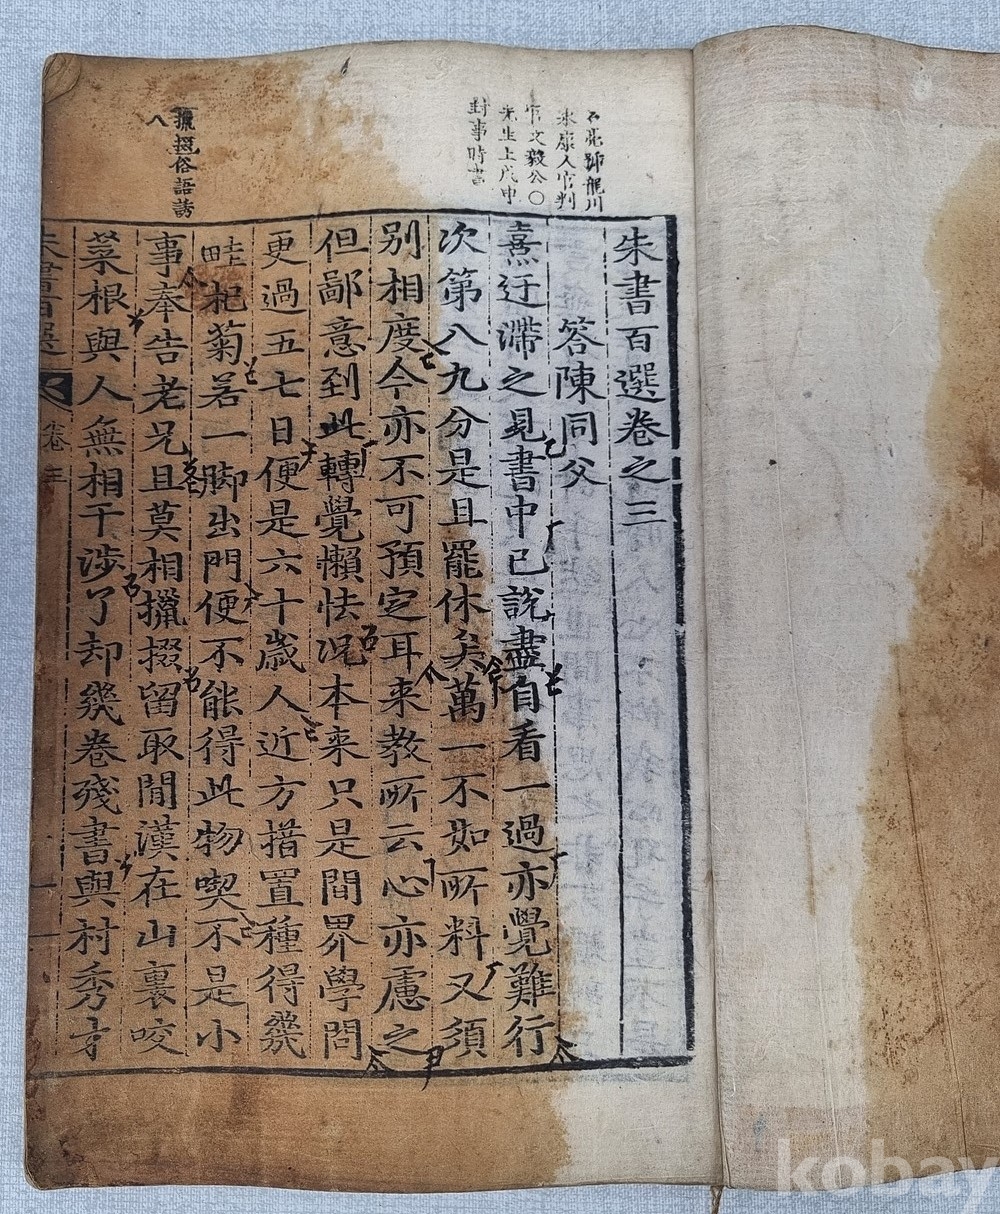 朱書百選卷之三
答陳同父
熹迂滯之見書中已說盡自看一過亦覺難行
次第八九分是且罷休矣萬一不如所料又須
別相度今亦不可預定耳来教所云心亦慮之
但鄙意到此轉覺懶怯况本来只是間界學問
更過五七日便是六十歲人近方措置種得幾
畦杞菊若一脚出門便不能得此物喫不是小
事奉告老兄且莫相攛掇留取閒漢在山裏咬
菜根與人無相干涉了却幾卷殘書與村秀才
朱書百選
卷三
亮 龍川
永康人官判
官文毅公〇
先生上戊申
封事時書
攛掇俗語誘
人
kobay